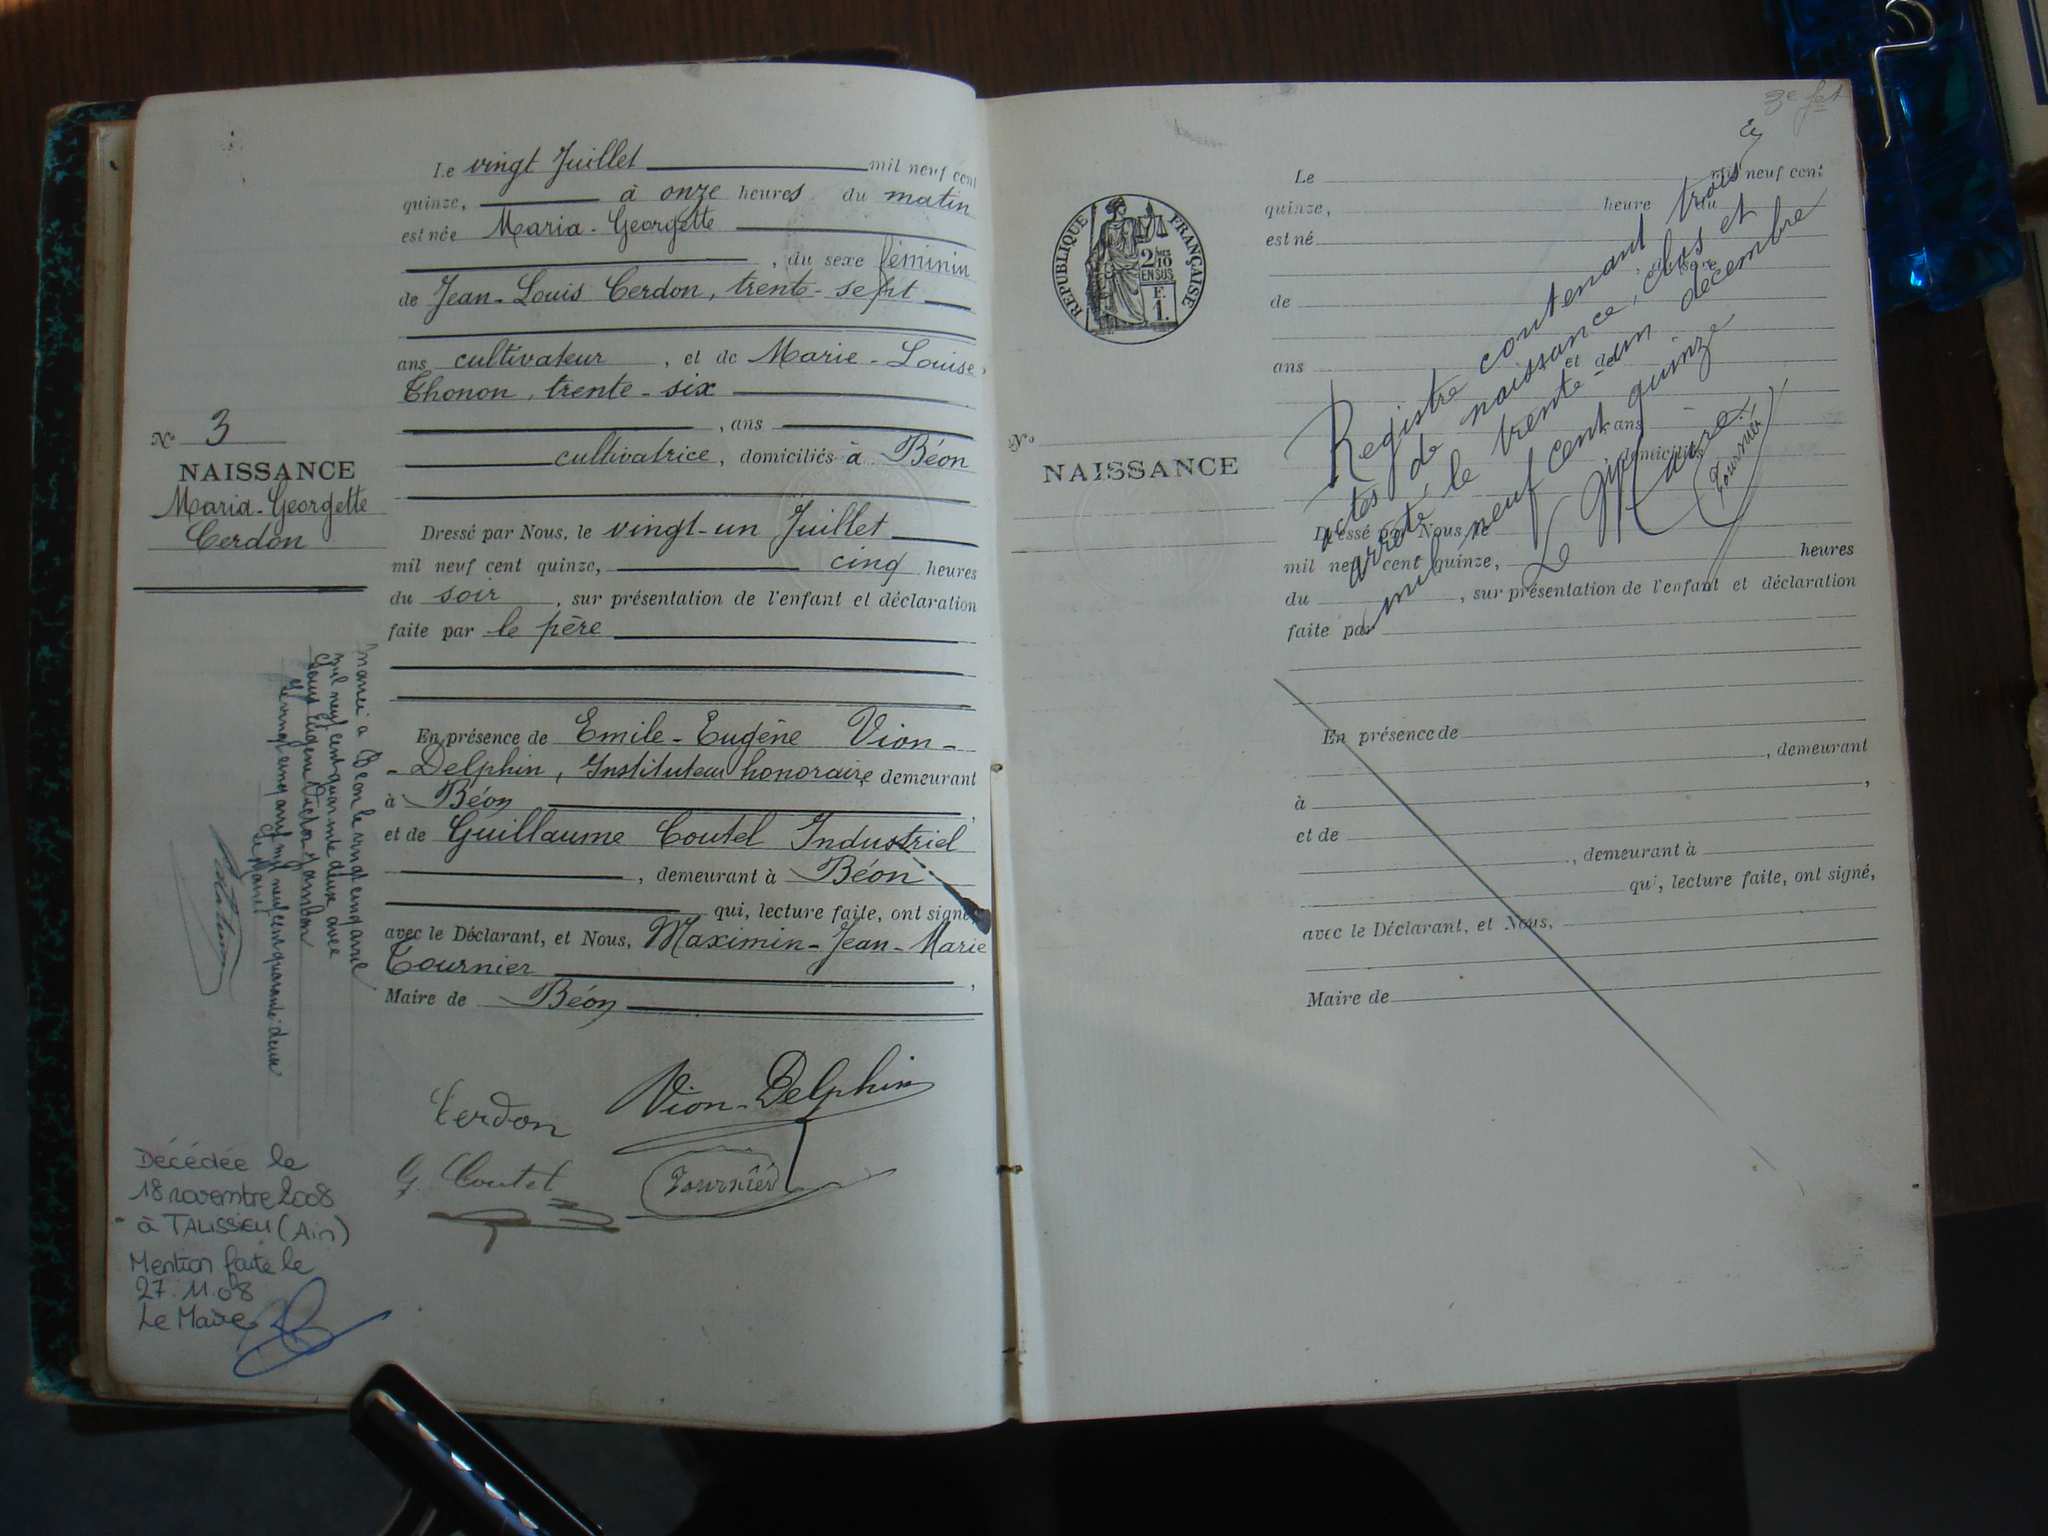 Le vingt Juillet mil neuf cent
quinze, à onze heures du matin
est née Maria-Georgette
, du sexe féminin
de Jean-Louis Cerdon, trente-sept
ans cultivateur, et de Marie-Louise
Thonon, trente-six
, ans
cultivatrice, domiciliés à Béon
Dressé par Nous, le vingt-un Juillet
mil neuf cent quinze, cinq heures
du soir, sur présentation de l'enfant et déclaration
faite par le père
En présence de Emile-Eugène Vion-
-Delphin, Instituteur honoraire demeurant
à Béon,
et de Guillaume Coutel Industriel
, demeurant à Béon
qui, lecture faite, ont signé,
avec le Déclarant, et Nous, Maximin-Jean-Marie
Tournier,
Maire de Béon
Cerdon Vion-Delphin
G. Coutel Tournier
No 3
NAISSANCE
Maria-Georgette
Cerdon
Mariée à Béon le vingt cinq avril
mil neuf cent quarante deux avec
Louis Eugène Victor Jambon
le vingt cinq avril mil neuf cent quarante deux
Le Maire
Décédée le
18 novembre 2008
à TALISSIEU (Ain)
Mention faite le
27.11.08
Le Maire
3e fet
RÉPUBLIQUE FRANÇAISE
2 10
EN SUS
E.
1.
No
NAISSANCE
Le mil neuf cent
quinze, heure du
est né
, du sexe
de
ans et de
, ans
domiciliés
Dressé par Nous, le
mil neuf cent quinze, heures
du , sur présentation de l'enfant et déclaration
faite par
En présence de
, demeurant
à ,
et de
, demeurant à
qui, lecture faite, ont signé,
avec le Déclarant, et Nous,
Maire de
Registre contenant trois
actes de naissance, clos et
arrêté, le trente-un décembre
mil neuf cent quinze
Le Maire:
Tournier